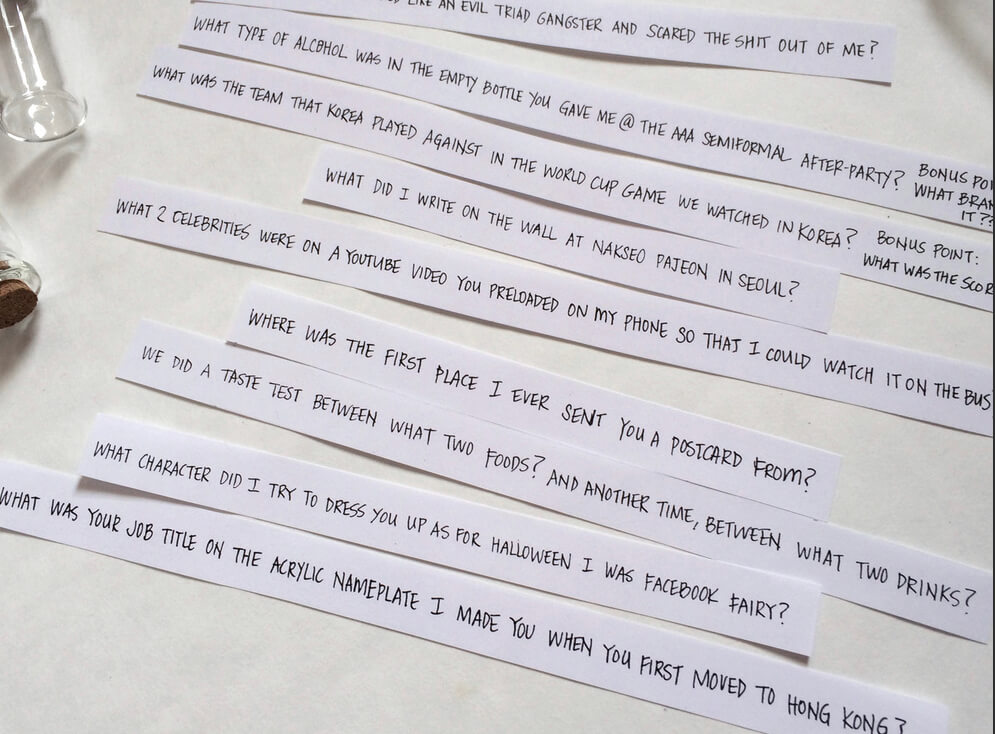 LIKE AN EVIL TRIAD GANGSTER AND SCARED THE SHIT OUT OF ME?
WHAT TYPE OF ALCOHOL WAS IN THE EMPTY BOTTLE YOU GAVE ME @ THE AAA SEMIFORMAL AFTER-PARTY?
BONUS
WHAT
IT??
WHAT WAS THE TEAM THAT KOREA PLAYED AGAINST IN THE WORLD CUP GAME WE WATCHED IN KOREA?
BONUS POINT:
WHAT WAS THE
WHAT DID I WRITE ON THE WALL AT NAKSEO PAJEON IN SEOUL?
WHAT 2 CELEBRITIES WERE ON A YOUTUBE VIDEO YOU PRELOADED ON MY PHONE SO THAT I COULD WATCH IT ON THE BUS
WHERE WAS THE FIRST PLACE I EVER SENT YOU A POSTCARD FROM?
WE DID A TASTE TEST BETWEEN WHAT TWO FOODS? AND ANOTHER TIME, BETWEEN WHAT TWO DRINKS?
WHAT CHARACTER DID I TRY TO DRESS YOU UP AS FOR HALLOWEEN I WAS FACEBOOK FAIRY?
WHAT WAS YOUR JOB TITLE ON THE ACRYLIC NAMEPLATE I MADE YOU WHEN YOU FIRST MOVED TO HONG KONG?